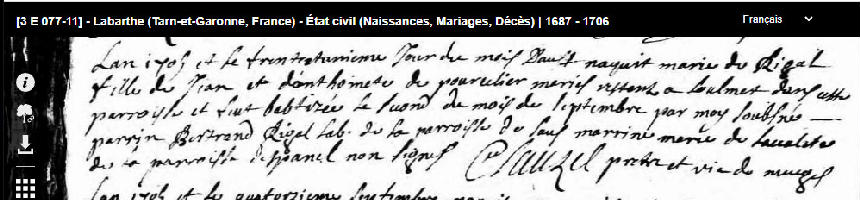 [3 E 077-11] - Labarthe (Tarn-et-Garonne, France) - État civil (Naissances, Mariages, Décès) | 1687 - 1706
Français
Lan 1705 et le trentetunieme Jour du mois Daust naquit marie de Rigal
fille de Jean et danthoinete de pourcelier mariés restent a Loulmet dans cette
parroisse et feut babtizée le second du mois de septembre par moy soubsné
parrin Bertrand Rigal lab. de la parroisse de saus marrine marie de
de la parroisse despanel non signes Clauzel pretre et vic de
Lan 1705 et le quatorzieme septembre